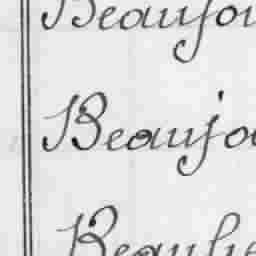 Beaujou
Beaujo
Beaulie